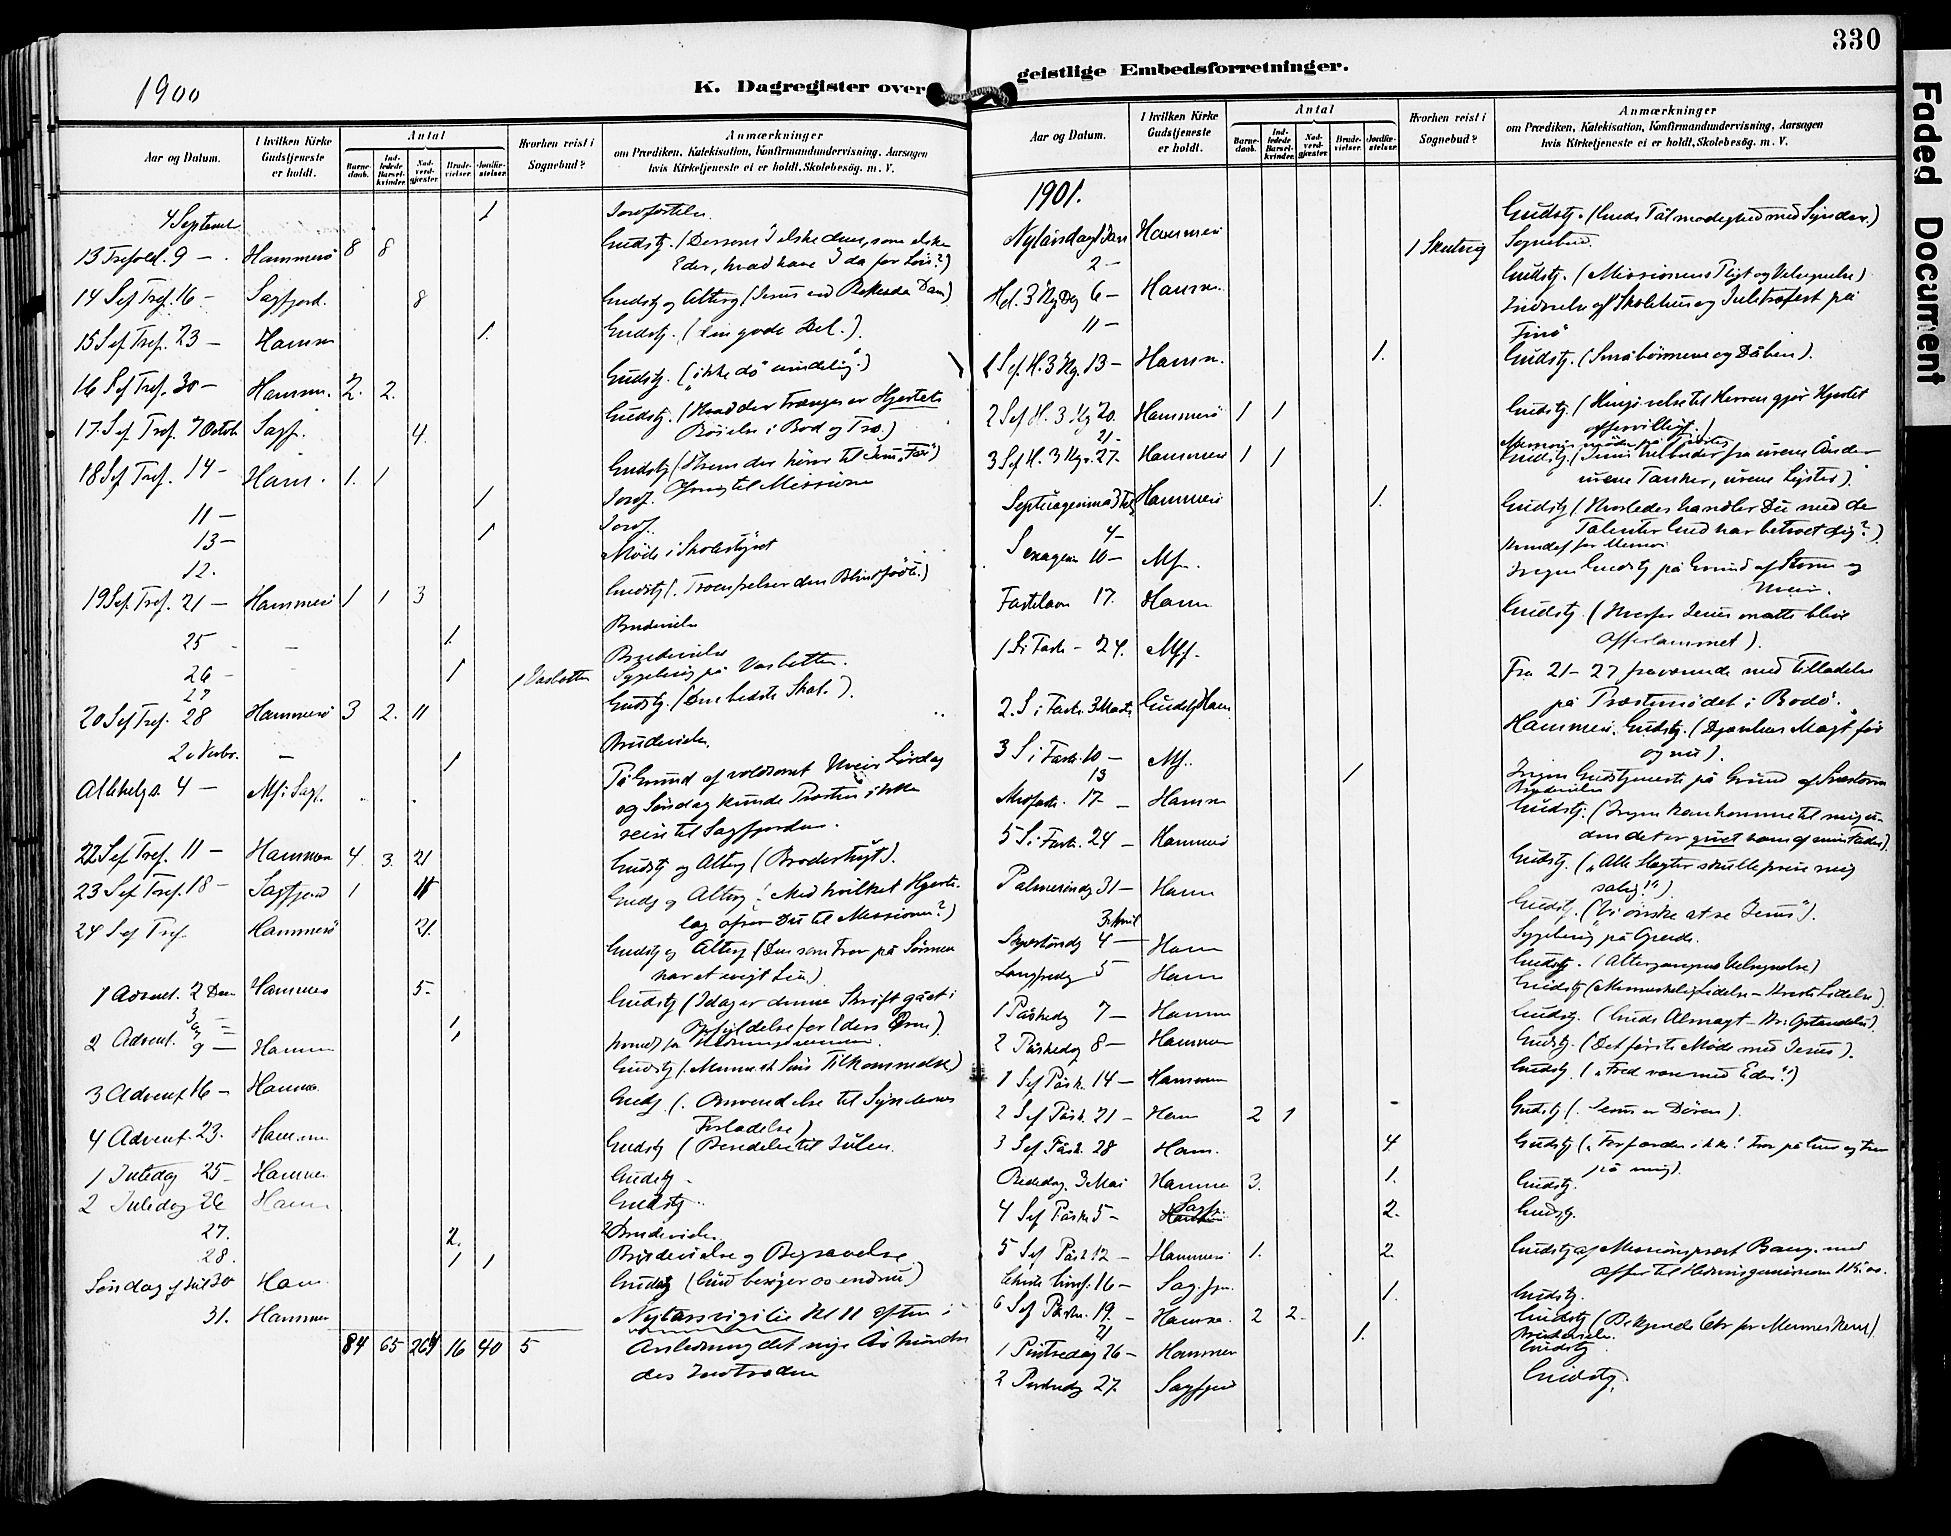 330
Faded Document
1900
K. Dagregister over geistlige Embedsforretninger.
Aar og Datum.
I hvilken Kirke Gudstjeneste er holdt.
Antal
Barnedaab.
Indledede Barselkvinder.
Nadverdgjæster
Brudevielser.
Jordfæstelser.
Hvorhen reist i Sognebud?
Anmærkninger
om Prædiken, Katekisation, Konfirmandundervisning, Aarsagen
hvis Kirketjeneste ei er holdt, Skolebesøg. m. V.
4 September 1 Jordfæstelse
13 Trefold. 9 – Hammerö 8 8 Gudstj. (Dersom I elske dem, som elske
Eder, hvad have I da for Løn?)
14 S ef Tref. 16 – Sagfjord. 8 Gudstj og Alterg (Jesus ved Bethesda Dam)
15 S ef Tref. 23 – Hamm 1. Gudstj. (den gode Del.).
16 S ef Tref. 30 – Hamm. 2. 2. Gudstj. ("ikke dö" )
17 S ef Tref. 7 Octob Sagf. 4. Gudstj. (Hvad der trænges er Hjertets
Böielse i Bod og Tro.)
18 S ef Tref. 14 – Ham. 1. 1 Gudstj (Hvem der hörer til Jesu )
Ofring til Missionen
11 – 1 Jordf.
13 – 1 Jordf.
12. Möde i Skolestyret
19 S ef Tref. 21 – Hammerö 1 1 3 Gudstj (. den Blindfödte.)
25 – 1. Brudevielse
26 – 1 Brudevielse
27 1 Vasbotten Sygebesøg på Vasbotten.
20 S ef Tref. 28 Hammerö 3 2. 11 Gudstj. (Den bedste Skat.).
2 Novbr. – 1 Brudevielse.
Allehelgs. 4 – Mf i Sagf. På Grund af voldsomt Uveir Lördag
og Söndag kunde Præsten ikke
reise til Sagfjorden.
22 S ef Tref. 11 – Hammer 4. 3. 21 Gudstj og Alterg (Broder ).
23 S ef Tref. 18 – Sagfjord 1 18 Guds og Alterg ( Med hvilket Hjerte-
lag ofrer Du til Missionen?)
24 S ef Tref. Hammerö 21. Gudstj og Alterg (Den som tror på Sönnen
har et evigt Liv)
1 Advent. 2 Dec Hammer 5. Gudstj (Idag er denne Skrift gået i
Opfyldelse for Eders Øren)
2 Advent. 9 – Hamm Gudstj (. Menneskens Söns Tilkommelse)
3 Advent 16 – Hamme. Gudstj (. Anvendelse til Syndernes
Forladelse)
4 Advent. 23. Hamm Gudstj (Beredelse til Julen.
1 Juledag 25 – Hammer Gudstj.
2 Juledag 26 Ham Gudstj.
27. 2. 2 Brudevielser.
28. 1 1 Brudevielse og Begravelse
Söndag ef Jul 30 Ham. Gudstj (Gud besöger os endnu)
31. Hammer Nytårsvigilie Kl 11 Aften i
84 65 264 16 40 5 Anledning det nye Århundre-
des Indtræden
Aar og Datum.
I hvilken Kirke Gudstjeneste er holdt.
Antal
Barnedaab.
Indledede Barselkvinder.
Nadverdgjæster
Brudevielser.
Jordfæstelser.
Hvorhen reist i Sognebud?
Anmærkninger
om Prædiken, Katekisation, Konfirmandundervisning, Aarsagen
hvis Kirketjeneste ei er holdt, Skolebesög. m. V.
1901.
Nytårsdag 1 Jan Hammerö Gudstj. (Guds Tålmodighed med Synder.)
2 – 1 Skutvig Sognebud.
Hel. 3 Kg Dg 6 – Hamm. Gudstj. (Missionens Pligt og Velsignelse)
11 – Indvielse af Skolehus og Juletræfest på
Finö
1 S ef. H. 3 Kg. 13 – Hamm. 1. Gudstj. (Småbörnene og Dåben).
2 S ef H. 3 Kg 20. Hammerö 1 1 Gudstj. ( til Herren gjör Hjertet
offervilligt.)
21 –
3 S ef H. 3 Kg. 27. Hammerö 1 1 Gudstj. (Jesus fra urene Ånder
urene Tanker, urene Lyster).
Septuagesima 3 Feb Hammerö 1. Gudstj (Hvorledes handler Du med de
Talenter Gud har betroet dig?)
4 –
Sexagesim 10 – Mf. Ingen Gudstj på Grund af Storm og
Uveir.
Fastelavn 17. Hamm Gudstj. (Hvorfor Jesus måtte blive
Offerlammet).
1 S i Faste – 24. Mf. Fra 21 – 27 fraværende med Tilladelse
på Præstemödet i Bodö.
2. S i Faste. 3 Marts Gudstj Ham. Hammerö. Gudstj. (Djævelens Magt för
og nu).
3 S i Faste. 10 – Mf. Ingen Gudstjeneste på Grund af Snestorm
13 1 Brudevielse
Midfaste. 17 – Hamm Gudstj. (Ingen kan komme til mig u-
den det er givet ham af min Fader).
5 S i Faste. 24 – Hammerö Gudstj. („Alle Slægter skulle prise mig
salig!“)
Palmesöndg 31 – Hamm Gudstj. („Vi önske at se Jesus“).
3 April Sygebesög på
Skjærtorsdg 4 – Ham Gudstj. (Altergangens Velsignelse)
Langfredg 5 Ham Gudstj (Menneskelig Lidelse – Kristi Lidelse)
1 Påskedg 7 – Hamm Gudstj. (Guds Almagt – Opstandelse).
2 Påskedag 8 – Hammer Gudstj. (Det förste Möde med Jesus).
1 S ef Påsk. 14 – Hammer Gudstj. („Fred være med Eder“.)
2 S ef Påsk. 21 – Ham 2 1 – Gudstj (. Jesus er Dören).
3 S ef Påsk. 28 Ham. 4 Gudstj („Forfærdes ikke! Tror på Gud og tror
på mig).
Bededag. 3 Mai Hamme 3. 1. Gudstj.
4 S ef Påske 5 – Sagf. 2. Gudstj.
5 S ef Påsk 12 – Hammerö 1. 2. Gudstj af Missionsprest Bang. med
offer til Hedningemissionen
Christi Himf. 16 – Sag. fjor. 1. Gudstj.
6 S ef Påske. 19. – Hamme. 2 2. Gudstj (Bekjende Chr for Menneskene).
21 1. Brudevielse.
1 Pintsedag 26 – Hammer Gudstj
2 Pintsedg 27. Sagfjord Gudstj.